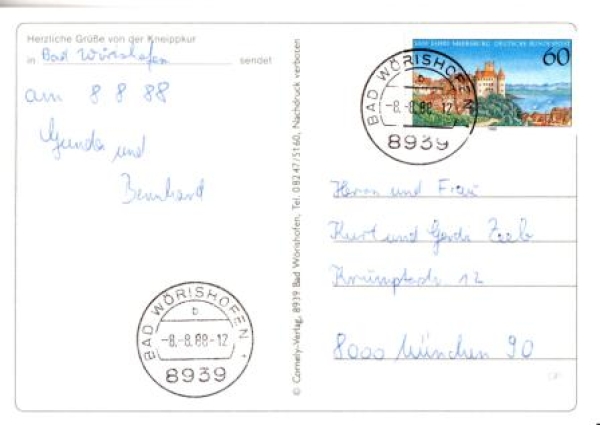 Herzliche Grüße von der Kneippkur
in Bad Wörishofen sendet
am 8 8 88
Gunda und
Bernhard
BAD WÖRISHOFEN 1
b
-8.-8.88-12
8939
© Cornely-Verlag, 8939 Bad Wörishofen, Tel. 08247/5160, Nachdruck verboten
1000 JAHRE MEERSBURG DEUTSCHE BUNDESPOST
60
BAD WÖRISHOFEN 1
b
-8.-8.88-12
8939
Herrn und Frau
Kurt und Gerdi Zeeb
12
8000 München 90